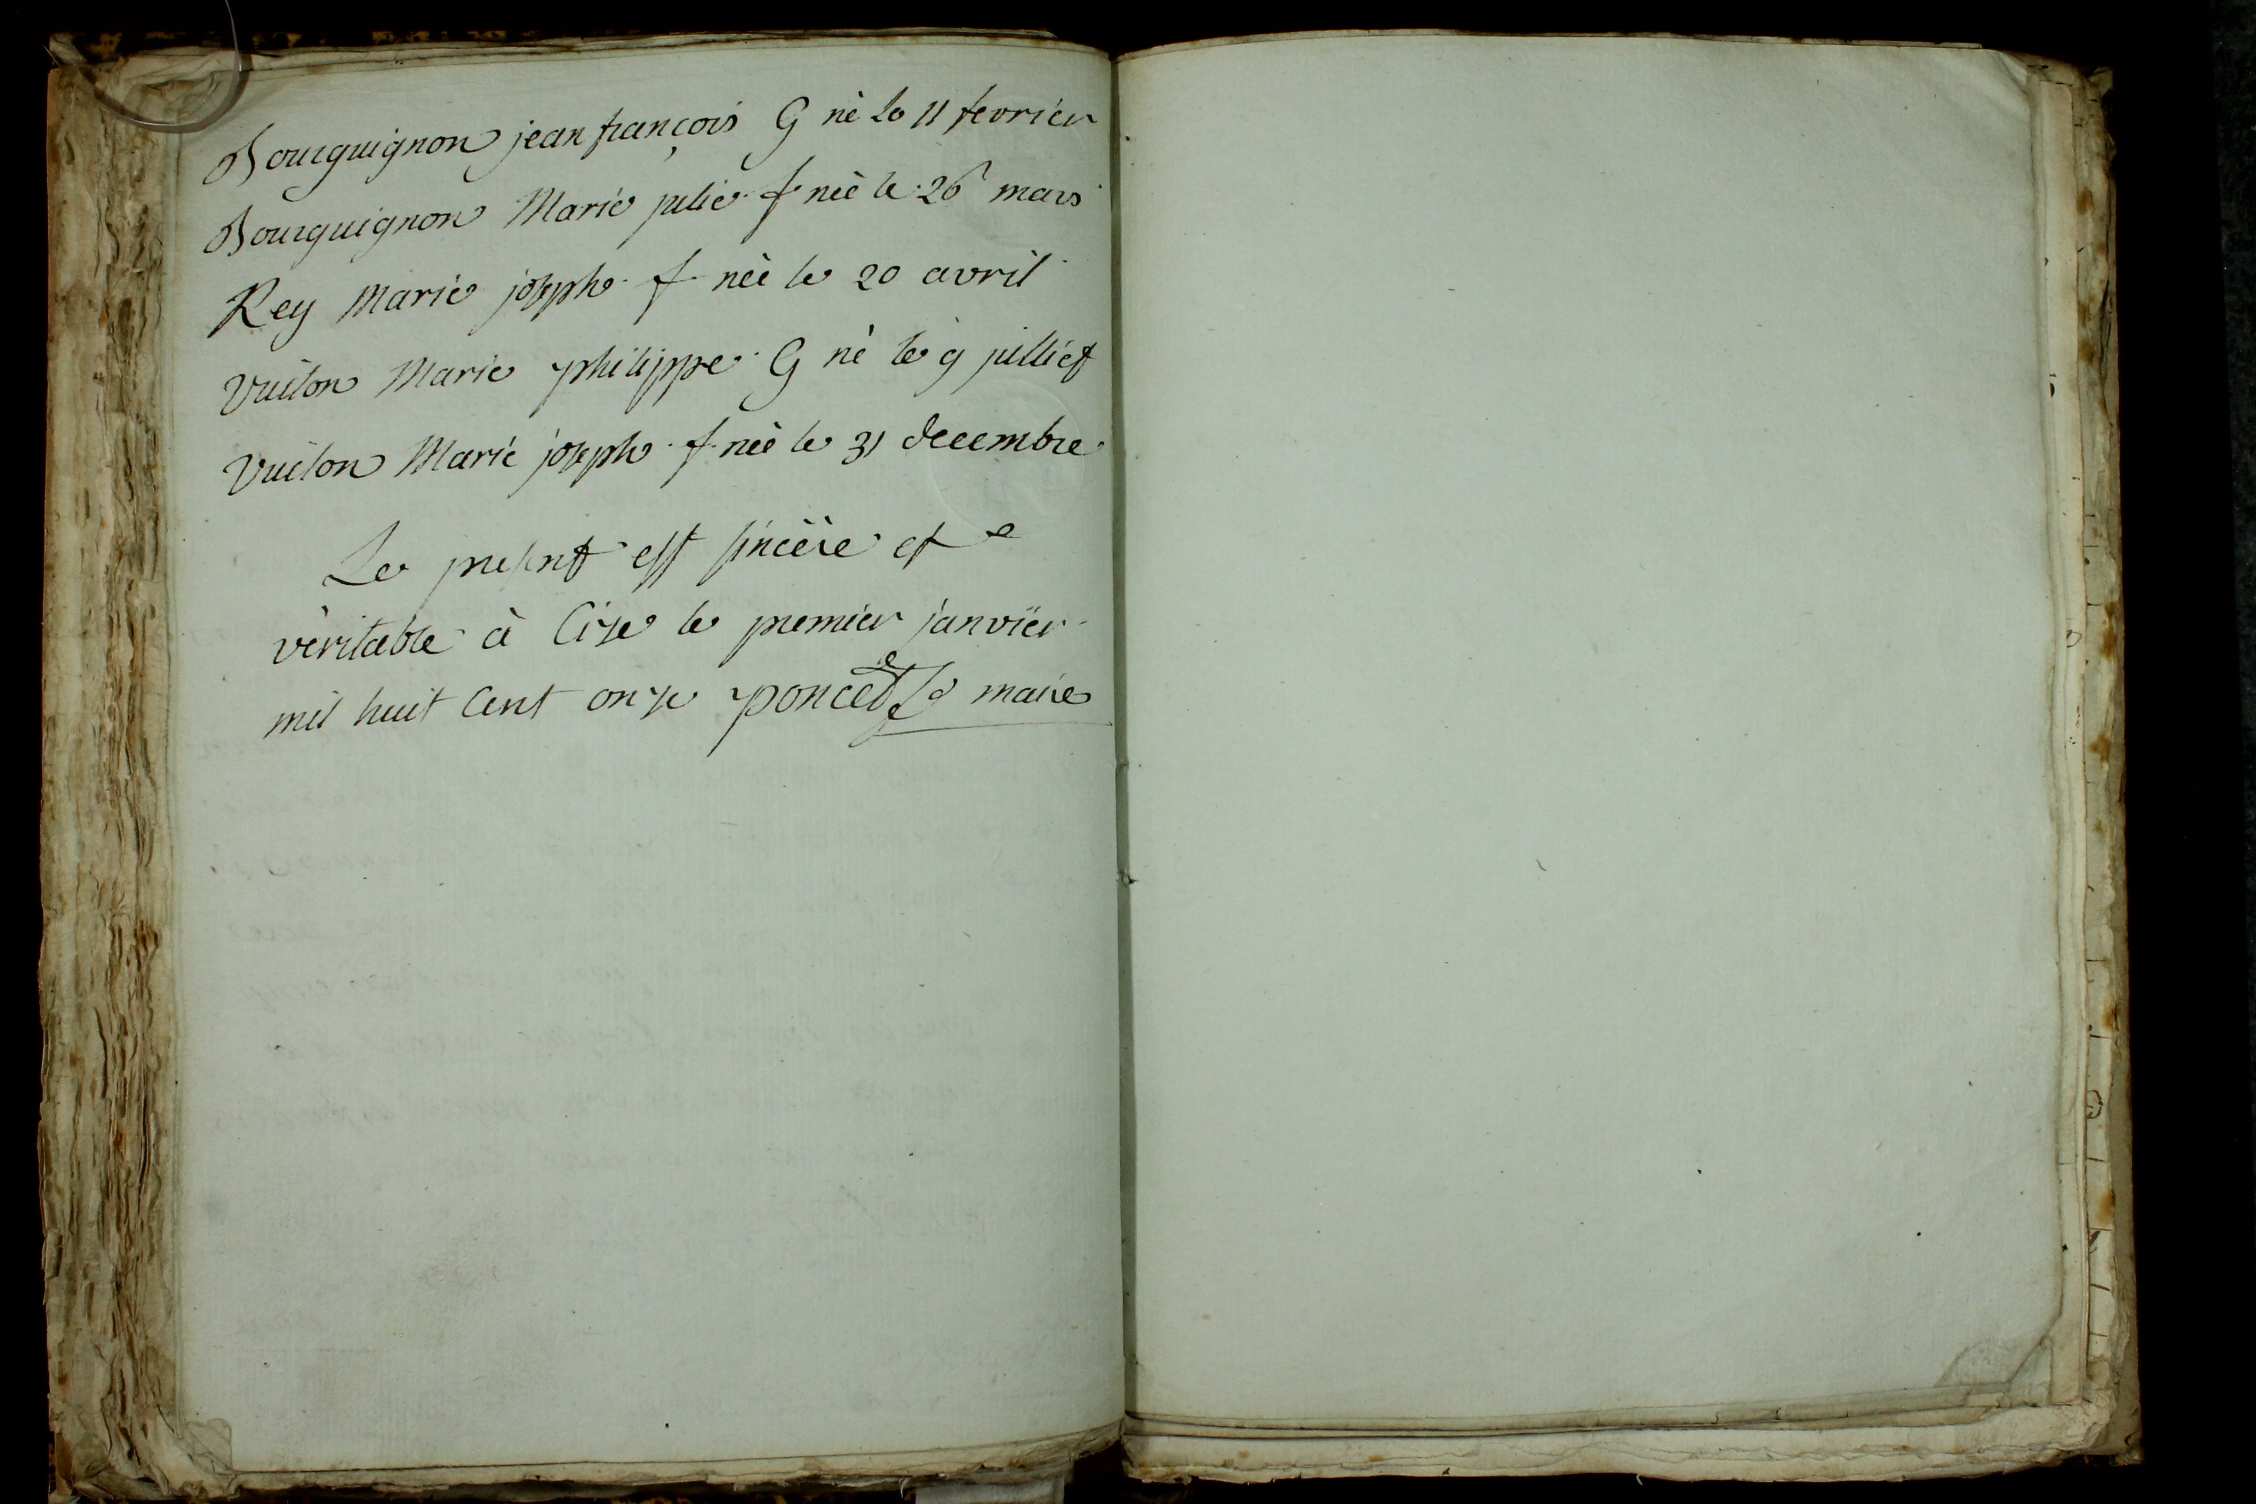 Bourguignon jean françois G nè le 11 fevrier
Bourguignon Marie julie f neè le 26 mars
Rey Marie joseph f neè le 20 avril
Vuiton Marie philippe G nè le 9 julliet
Vuiton Marie joseph f neè le 31 decembre
Le present est sincère et
vèritable à Cize le premier janvier
mil huit Cent onze poncet Le maire